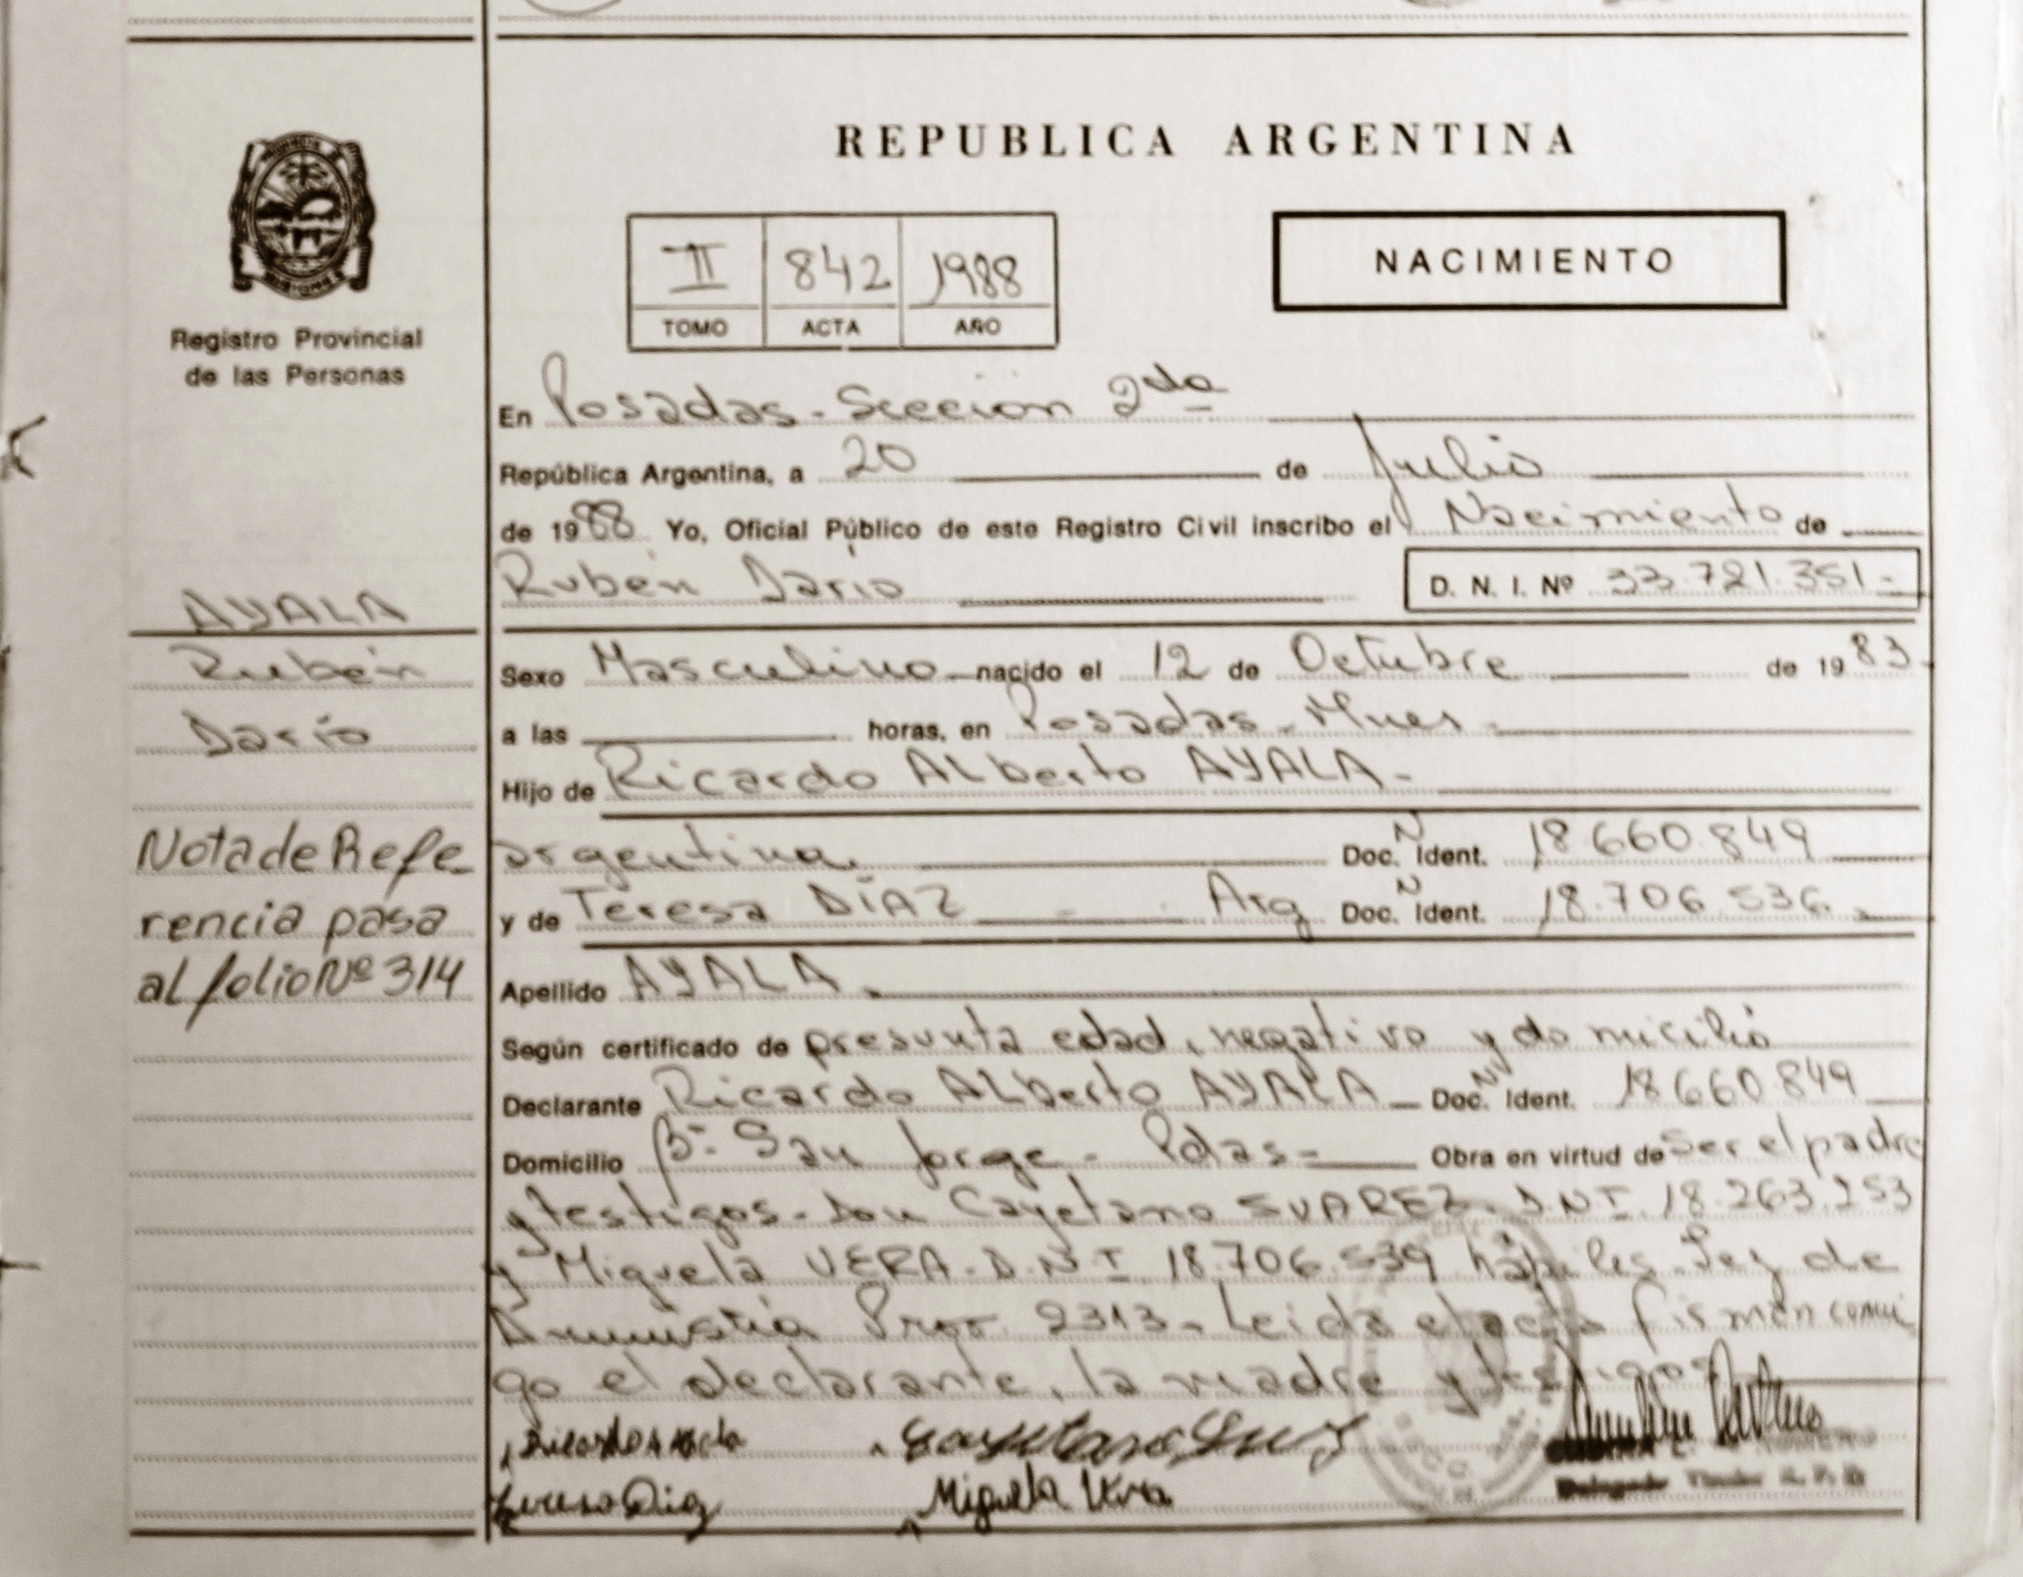 REPUBLICA ARGENTINA
II 842 1988
TOMO ACTA AÑO
NACIMIENTO
Registro Provincial
de las Personas
En Posadas - Sección 2da
República Argentina, a 20 de Julio
de 1988 Yo, Oficial Público de este Registro Civil inscribo el Nacimiento de
Rubén Darío D. N. I. Nº 33.721.351.-
AYALA
Rubén
Darío
Sexo Masculino nacido el 12 de Octubre de 1983.
a las horas, en Posadas - Mnes -
Hijo de Ricardo ALberto AYALA.-
argentina. Doc. N Ident. 18.660.849
y de Teresa DÍAZ Arg Doc. N Ident. 18.706.536.
Apellido AYALA.
Nota de Refe-
rencia pasa
al folio Nº 314
Según certificado de presunta edad, negativo y domicilio
Declarante Ricardo ALberto AYALA Doc. N Ident. 18.660.849
Domicilio Bº San Jorge - Pdas - Obra en virtud de ser el padre
y testigos - Don Cayetano SUAREZ. D.N.I. 18.263.253
y Miguela VERA. D.N.I 18.706.539 hábiles. Ley de
Amnistía 2313 - Leida el acta firman conmi
go el declarante, la madre y testigos
Ricardo Ayala
Teresa Diaz
Miguela Vera